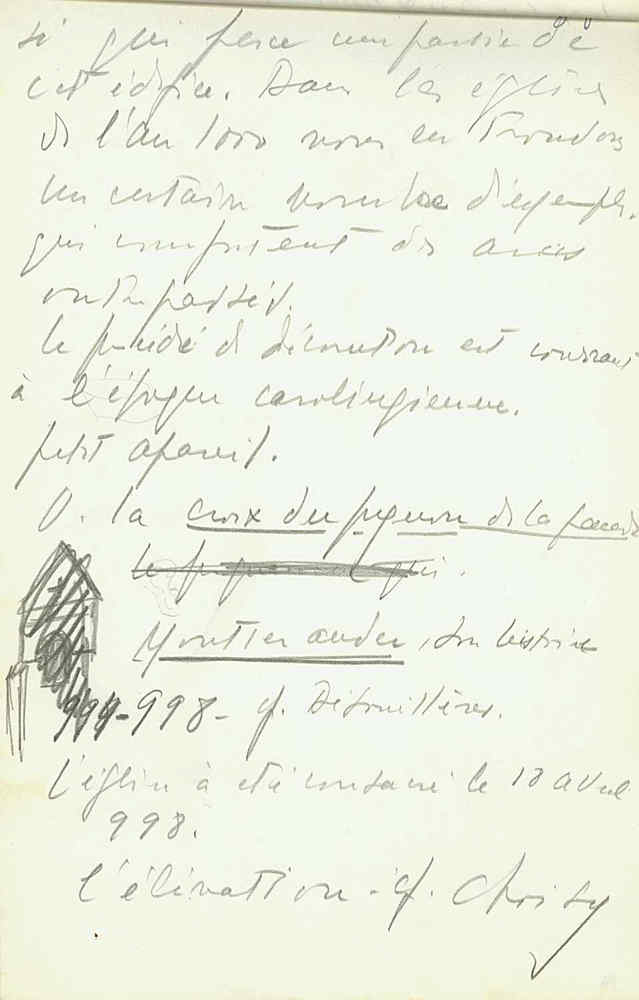 si qui perce une partie de
cet édifice. Dans les églises
de l'an 1000 nous en trouvons
un certain nombre d'exemples,
qui comportent des arcs
outrepassés.
le procédé de décoration est courant
à l'époque carolingienne.
petit appareil.
V. la croix du pignon de la façade
Montier ander, son histoire
994-998- cf. Defouillères.
L'église à été consacré le 18 avril
998.
l'élévation - cf. Choisy